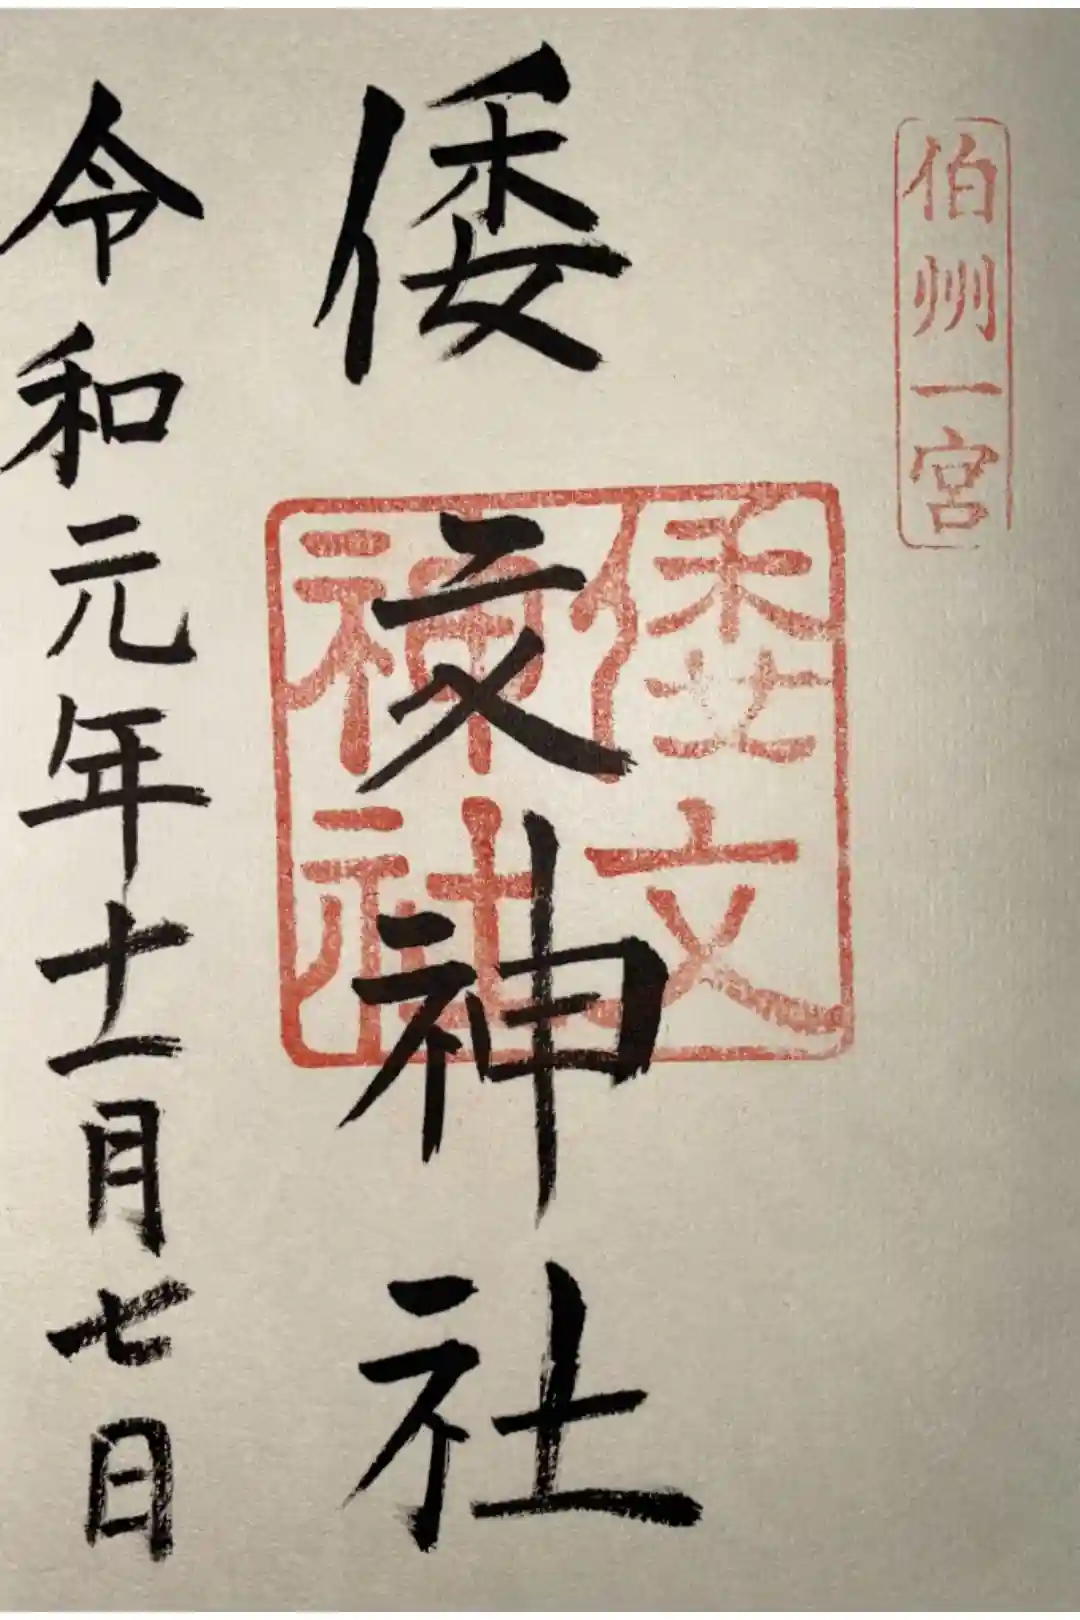 伯州一宮
倭文神社
倭文
神社
令和元年十一月七日